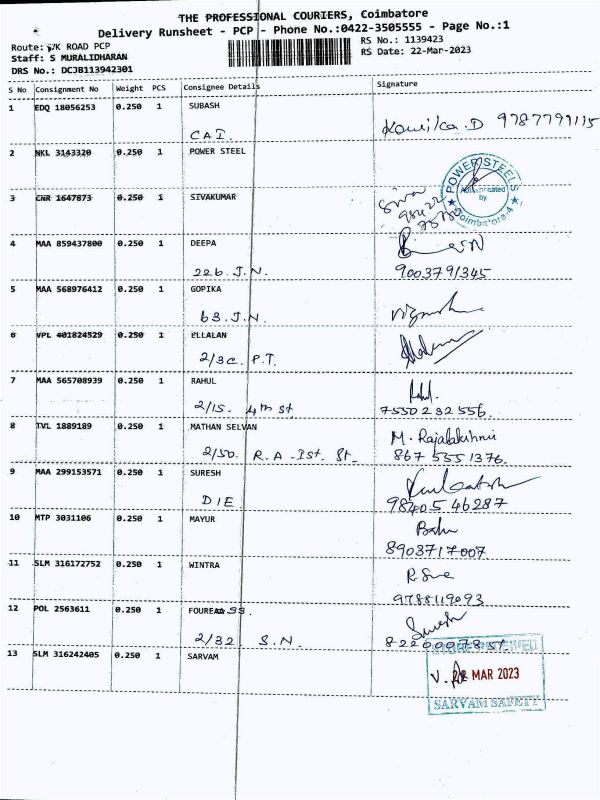 THE PROFESSIONAL COURIERS, Coimbatore
Delivery Runsheet - PCP - Phone No.:0422-3505555 - Page No.:1
Route: VK ROAD PCP
Staff: S MURALIDHARAN
DRS No.: DCJB113942301
RS No.: 1139423
RS Date: 22-Mar-2023
S No Consignment No Weight PCS Consignee Details Signature
1 EDQ 18056253 0.250 1 SUBASH
CAI. 9787799115
2 NKL 3143320 0.250 1 POWER STEEL
POWER STEELS
by
Coimbatore-4
3 CNR 1647873 0.250 1 SIVAKUMAR
Siva
4 MAA 859437800 0.250 1 DEEPA
22b. J.N. 9003791345
5 MAA 568976412 0.250 1 GOPIKA
63. J.N.
6 VPL 401824529 0.250 1 ELLALAN
2/3C. P.T.
7 MAA 565708939 0.250 1 RAHUL
2/15. 4th St, 7550232556.
8 TVL 1889189 0.250 1 MATHAN SELVAN
M. Rajalakshmi
2/50. R.A - Ist. St_ 867 5551376.
9 MAA 299153571 0.250 1 SURESH
DIE 98405 46287
10 MTP 3031106 0.250 1 MAYUR
Babu
8903717007
11 SLM 316172752 0.250 1 WINTRA
9788119093
12 POL 2563611 0.250 1
Suresh
2/32 S.N.
13 SLM 316242405 0.250 1 SARVAM
MAR 2023
SARVAM SAFETY